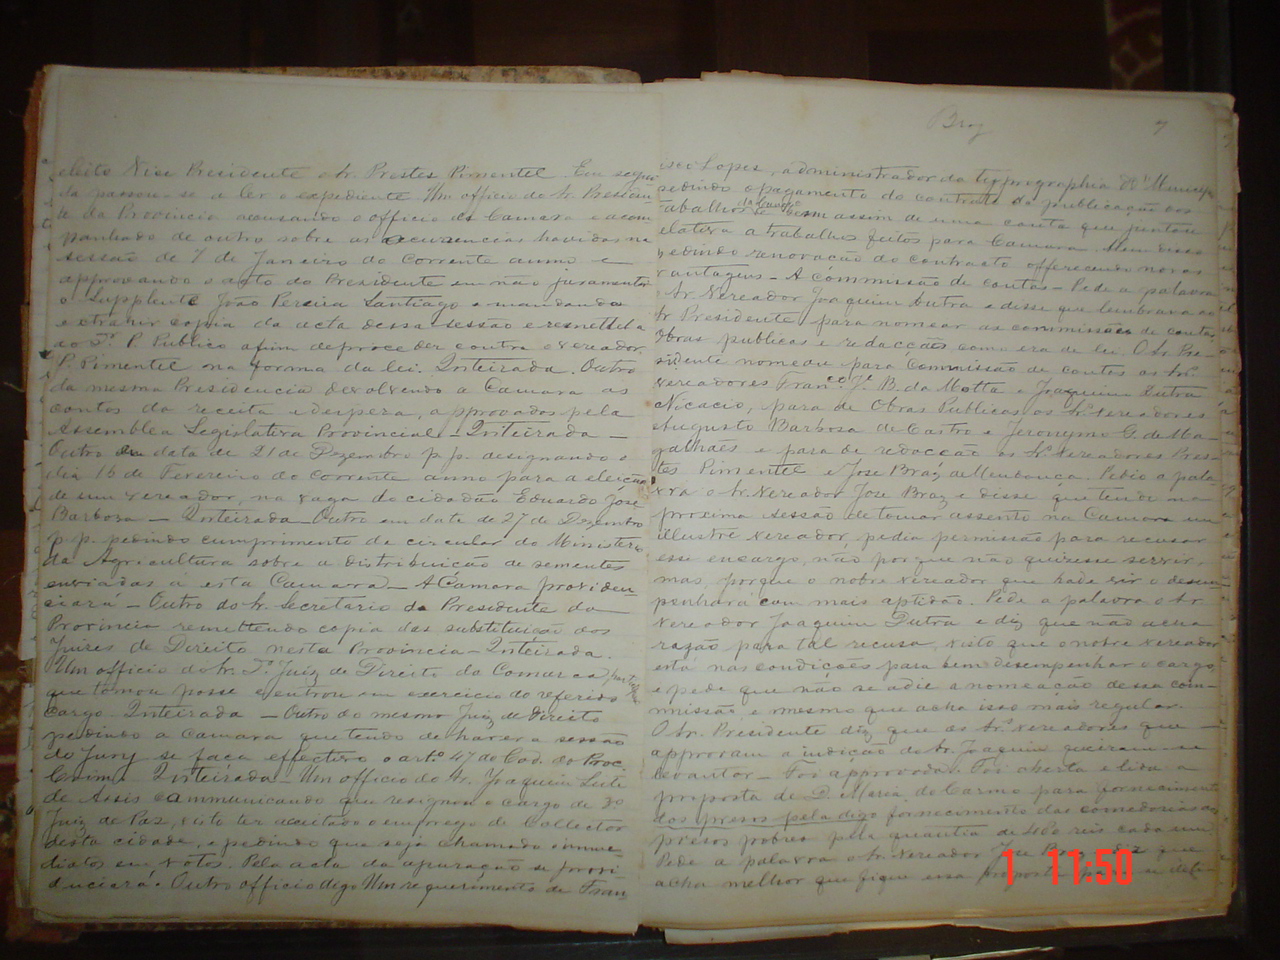 eleito Vice Presidente o Sr. Prestes Pimentel. Em segui
da passou-se a ler o expediente Um officio do Sr. Presiden
te da Provincia accusando o officio da Camara e acom
panhado de outro sobre as occurencias havidas na
sessão de 7 de Janeiro do corrente anno e
approvando o acto do Presidente em não juramentar
o Supplente João Pereira Santiago e mandando
extrahir copia da acta dessa sessão e remettel-a
ao Publico afim de proceder contra o vereador
P. Pimentel na forma da lei. Inteirada. Outro
da mesma Presidencia devolvendo a Camara as
contas da receita e despeza, approvados pela
Assemblea Legislativa Provincial - Inteirada -
Outro em data de 21 de Dezembro p.p. designando o
dia 16 de Fevereiro do corrente anno para a eleição
de um vereador, na vaga do cidadão Eduardo José
Barbosa - Inteirada - Outro em data de 27 de Dezembro
p.p. pedindo cumprimento da circular do Ministerio
da Agricultura sobre a distribuição de sementes
enviadas á esta Camara - A Camara providen
ciará - Outro do Sr. Secretario da Presidencia da
Provincia remettendo copia das substituição dos
Juizes de Direito nesta Provincia - Inteirada.
Um officio do Sr. Juiz de Direito da Comarca
que tomou posse e entrou em exercicio do referido
cargo - Inteirada - Outro do mesmo Juiz de Direito
pedindo a Camara que tendo de haver a sessão
do Jury se faça effectivo o art.º 47 do Cod. do Proc.
Crime Inteirada - Um officio do Sr. Joaquim Leite
de Assis communicando que resignou o cargo de 3º
Juiz de Paz, visto ter acceitado o emprego de Collector
desta cidade, e pedindo que seja chamado o imme
diatos em votos. Pela acta da apuração se provi
denciará. Outro officio digo Um requerimento de Fran
Braz 7
isco Lopes, administrador da typographia
pedindo o pagamento do contracto da publicação dos
trabalhos da Camara bem assim de uma conta que juntou
relativa a trabalhos feitos para Camara. Alem disso
pedindo renovação do contracto offerecendo novas
vantagens - A commissão de contas - Pede a palavra
o Sr. Vereador Joaquim Dutra e disse que lembrava ao
Sr Presidente para nomear as commissões de contas,
Obras publicas e redacções, como era de lei. O Sr. Pre-
sidente nomeou para Commissão de contas os Srs.
vereadores Franco. Je. B. da Motta e Joaquim Dutra
Nicacio, para de Obras Publicas os Srs. vereadores
Augusto Barbosa de Castro e Jeronymo G. de Ma-
galhães e para de redacção os Srs. Vereadores Pres-
tes Pimentel e José Braz de Mendonça. Pedio a pala
vra o Sr. Vereador José Braz e disse que tendo na
proxima sessão de tomar assento na Camara um
illustre vereador, pedia permissão para recusar
esse encargo, não porque não quizesse servir,
mas, porque o nobre vereador que hade vir o desem
penhará com mais aptidão. Pede a palavra o Sr.
vereador Joaquim Dutra e diz que não acha
razão para tal recusa, visto que o nobre vereador
está nas condições para bem desempenhar o cargo,
e pede que não se adie a nomeação dessa com-
missão e mesmo que acha isso mais regular.
O Sr. Presidente diz que os Srs. vereadores que
approvam a indição do Sr. Joaquim queiram se
levantar - Foi approvada. Foi aberta e lida a
proposta de D. Maria do Carmo para fornecimento
dos presos pela digo fornecimento das comedorias aos
presos pobres pela quantia de 480 reis cada um
Pede a palavra o Sr. Vereador José Braz e diz que
acha melhor que fique essa proposta
1 11:50